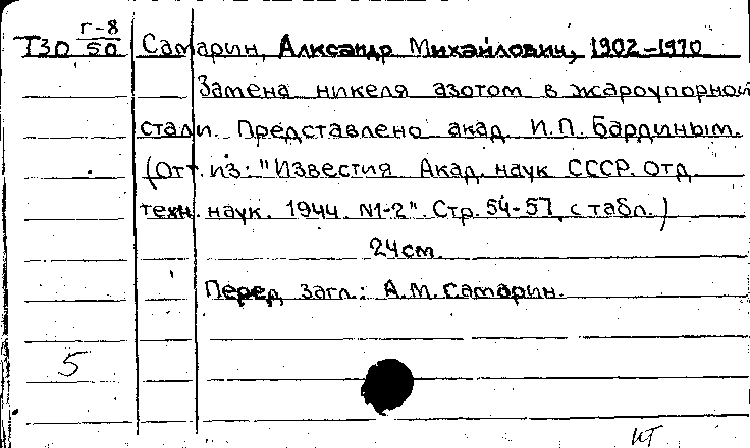 Т30 г-8/50 Самарин, Александр Михайлович, 1902-1970
Замена никеля азотом в жароупорной
стали. Представлено акад. И.П. Бардиным.
(Отт. из: "Известия Акад. наук СССР. Отд.
техн. наук. 1944. N1-2". Стр. 54-57, с табл.)
24 см.
Перед загл.: А.М. Самарин.
5
ИТ